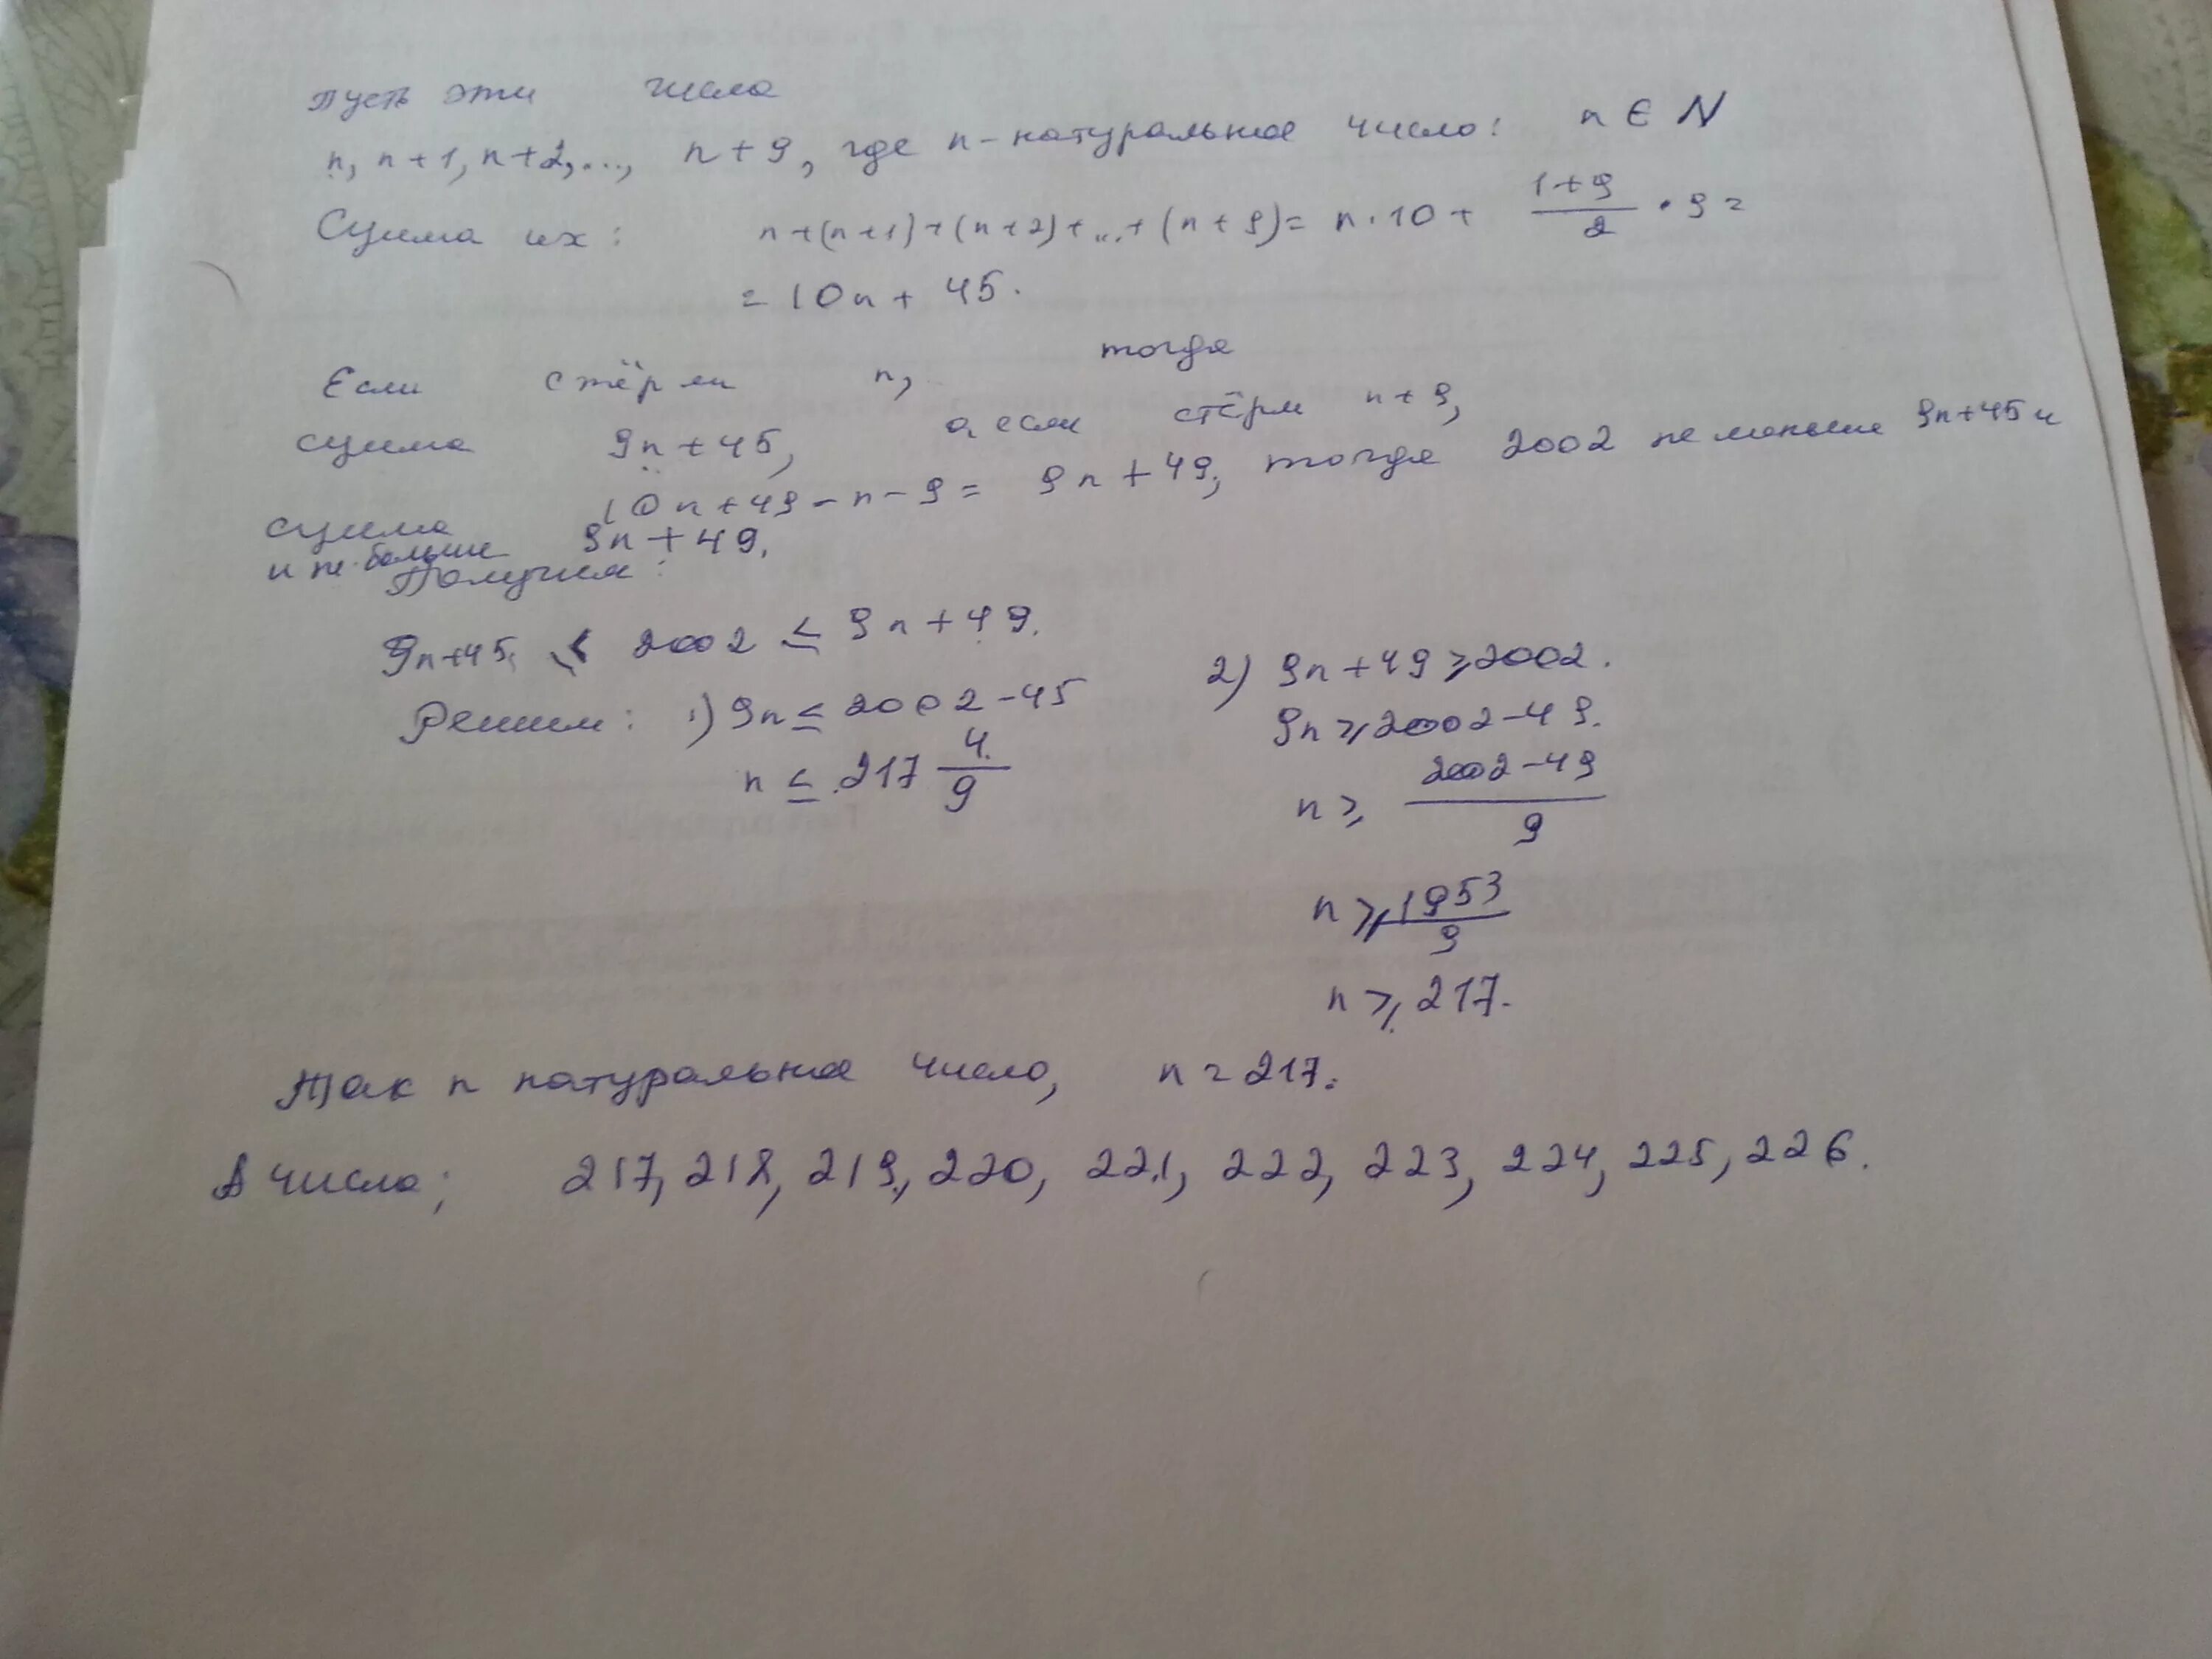 Пусть эти числа
n, n+1, n+2, ..., n+9, где n-натуральное число: n ∈ N
Сумма их: n+(n+1)+(n+2)+...+(n+9)= n·10+ \frac{1+9}{2} · 9 =
= 10n + 45.
Если стёрли n, тогда
сумма 9n+45, а если стёрли n+9,
сумма 10n+49-n-9= 9n+49, тогда 2002 не меньше 9n+45 и
и не больше 9n+49.
Получим:
9n+45 ≤ 2002 ≤ 9n+49.
Решим: 1) 9n ≤ 2002-45
n ≤ 217 \frac{4}{9}
2) 9n+49 ≥ 2002.
9n ≥ 2002-49.
n ≥ \frac{2002-49}{9}
n ≥ \frac{1953}{9}
n ≥ 217.
Так n натуральное число, n = 217.
А числа; 217, 218, 219, 220, 221, 222, 223, 224, 225, 226.